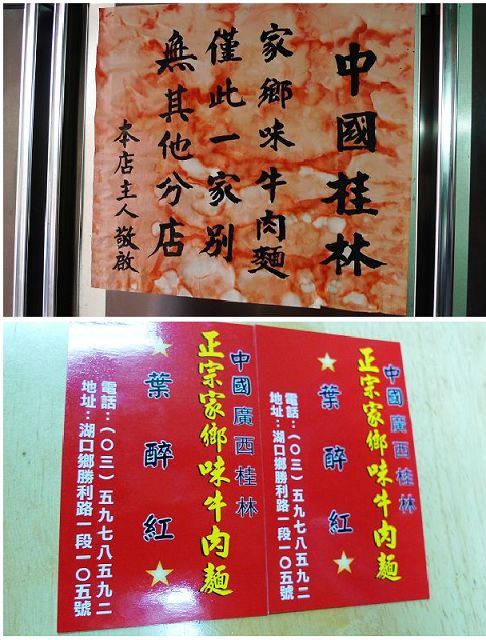 中國桂林
家鄉味牛肉麵
僅此一家別
無其他分店
本店主人敬啟
中國廣西桂林
正宗家鄉味牛肉麵
葉醉紅
電話：（〇三）五九七八五九二
地址：湖口鄉勝利路一段一〇五號
中國廣西桂林
正宗家鄉味牛肉麵
葉醉紅
電話：（〇三）五九七八五九二
地址：湖口鄉勝利路一段一〇五號